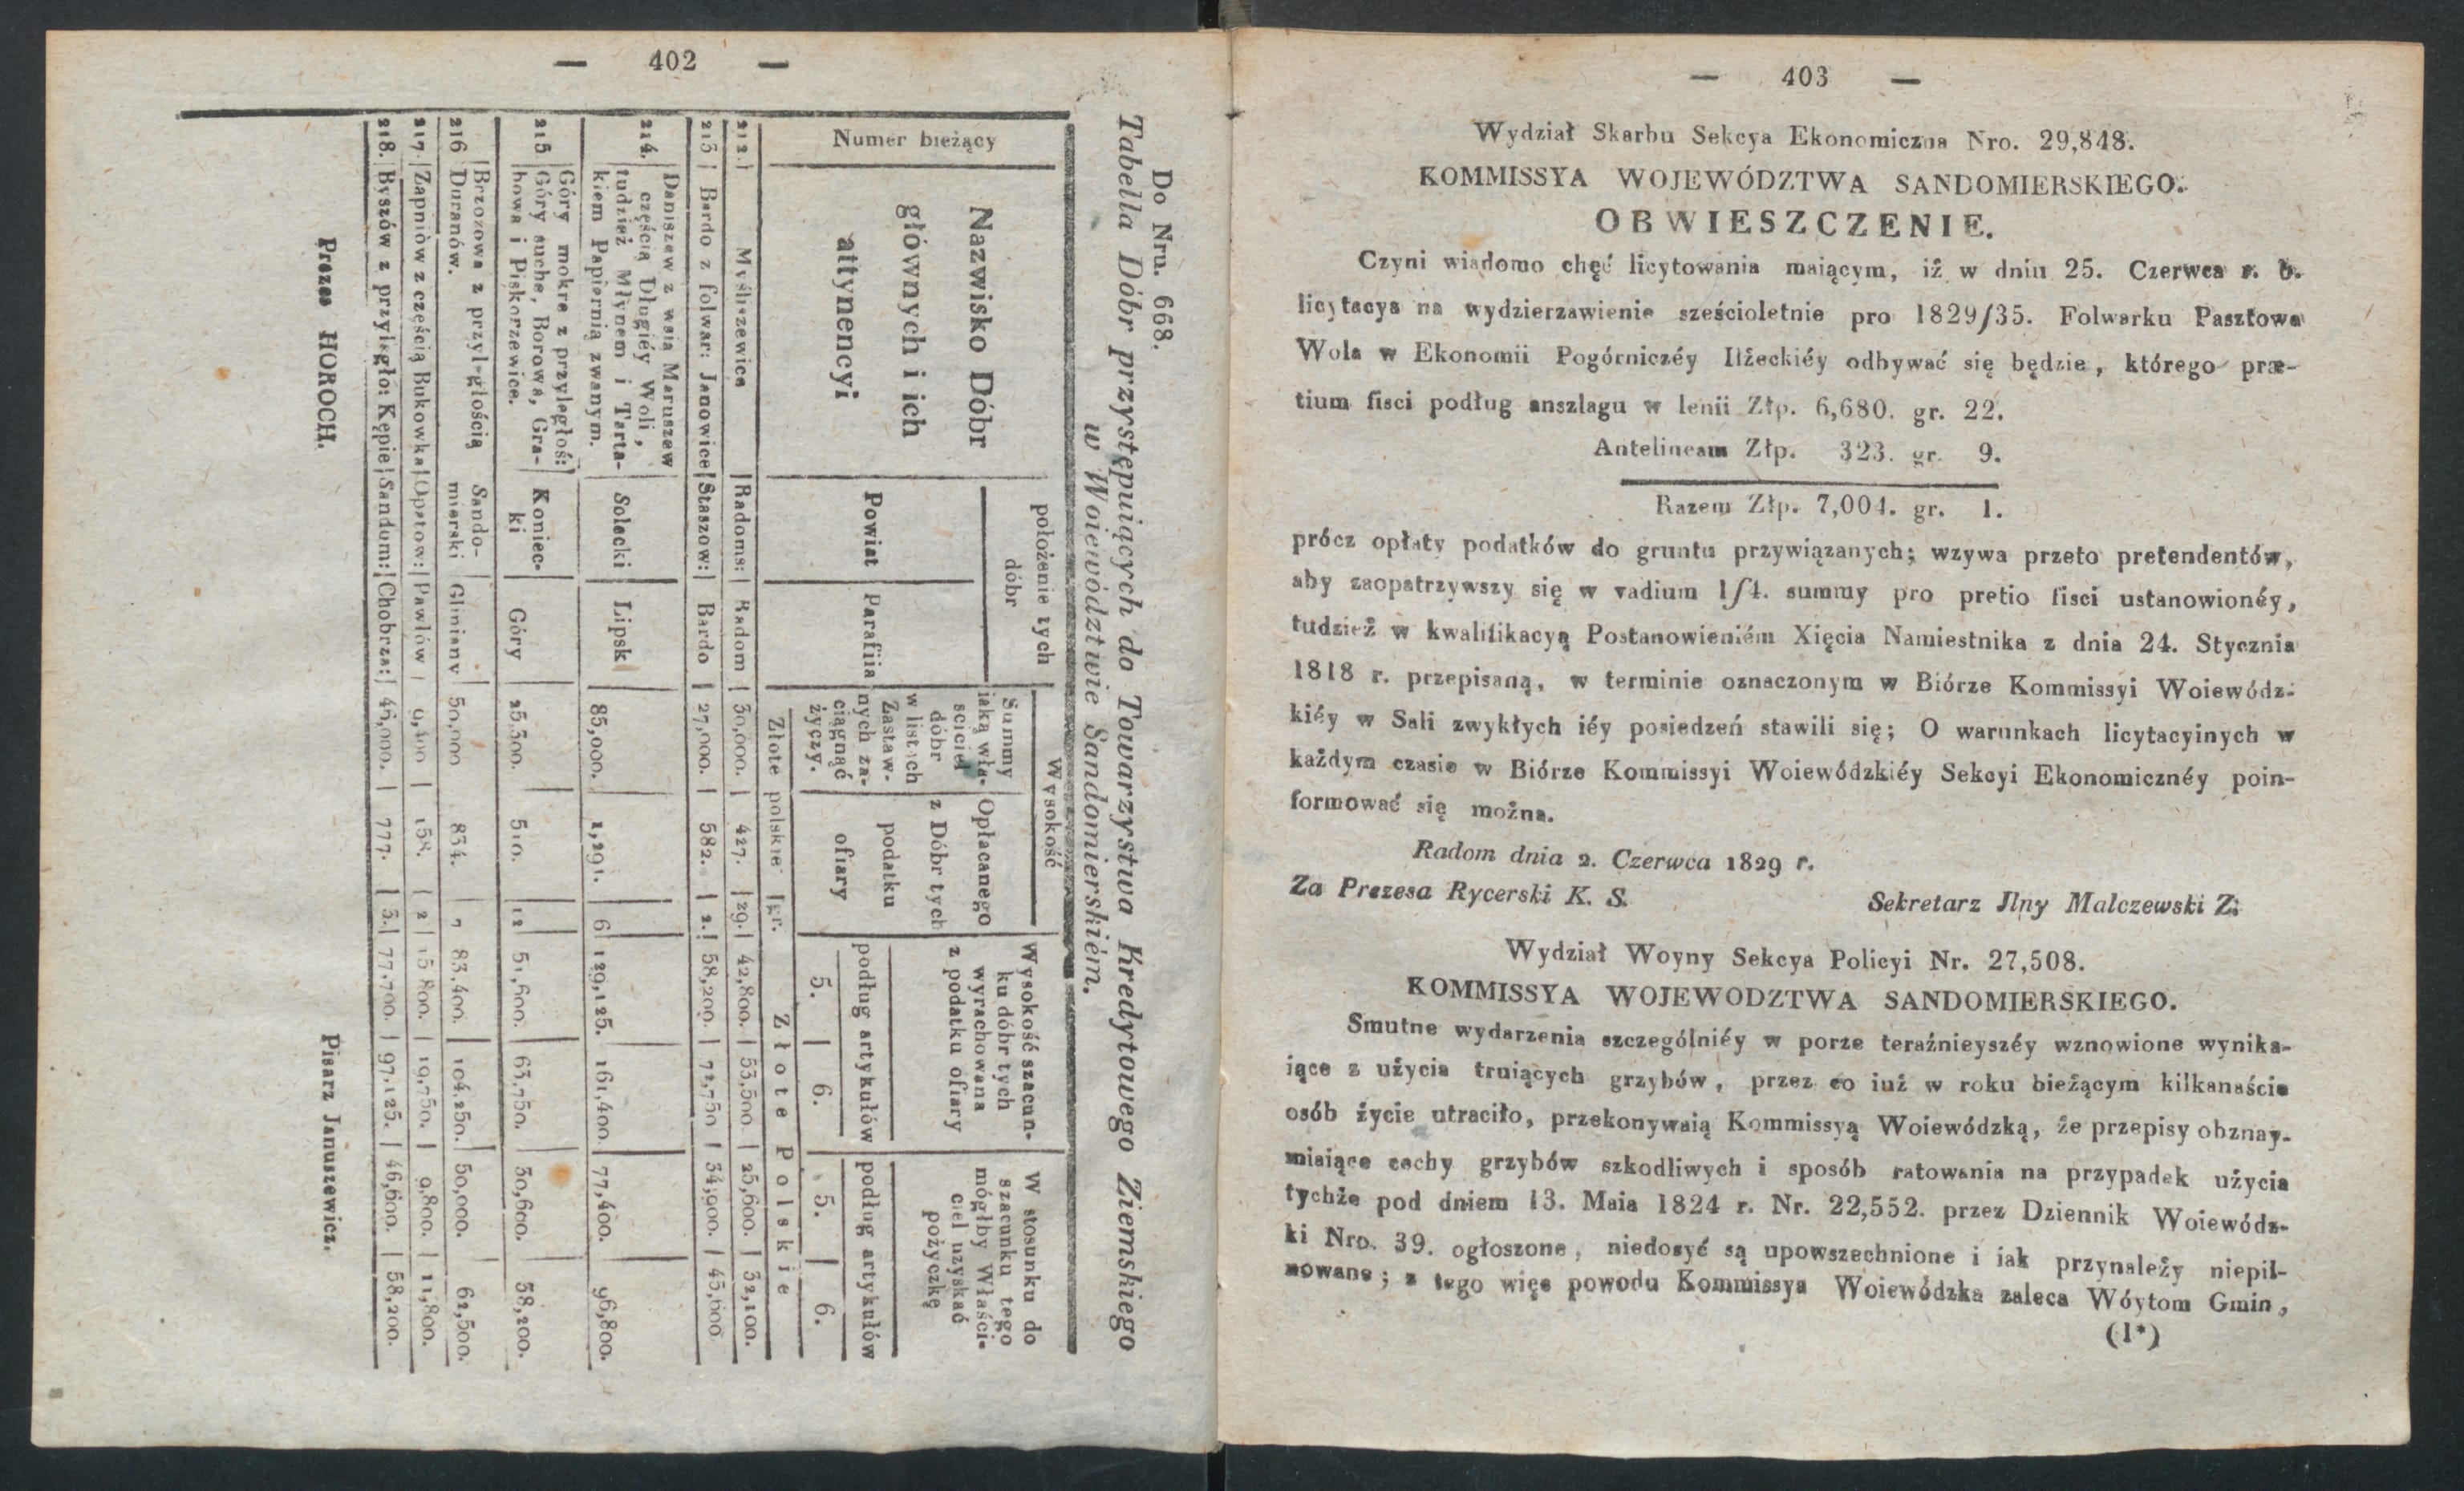 — 402 —
Do Nru. 668.
Tabella Dóbr przystępuiących do Towarzystwa Kredytowego Ziemskiego
w Woiewództwie Sandomierskiém.
Numer bieżący
Nazwisko Dóbr
głównych i ich
attynencyi
położenie tych
dóbr
Powiat
Parafiia
Wysokość
Summy
iaką wła-
sciciel
dóbr
w listach
Zastaw-
nych za-
ciągnąć
życzy.
Opłacanego
z Dóbr tych
podatku
ofiary
Złote polskie gr.
Wysokość szacun-
ku dóbr tych
wyrachowana
z podatku ofiary
podług artykułów
5. 6.
W stosunku do
szacunku tego
mógłby Właści-
ciel uzyskać
pożyczkę
podług artykułów
5. 6.
Złote Polskie
212. Myśliszewice Radoms: Radom 30,000. 427. 29. 42,800. 53,500. 25,600. 32,100.
213 Bardo z folwar: Janowice Staszow: Bardo 27,000. 582. 2. 58,200. 72,750 34,900. 43,600.
214. Daniszew z wsia Maruszew
częścią Długiéy Woli,
tudzież Młynem i Tarta-
kiem Papiernią zwanym. Solecki Lipsk 85,000. 1,291. 6 129,125. 161,400. 77,400. 96,800.
215 Góry mokre z przyległoś:
Góry suche, Borowa, Gra-
bowa i Piskorzewice. Koniec-
ki Góry 25,500. 510. 12 51,600. 63,750. 30,600. 38,200.
216 Brzozowa z przyległością
Duranów. Sando-
mierski Gliniany 50,000 834. 7 83,400. 104,250. 50,000. 62,500.
217 Zapniów z częścią Bukowka Opatow: Pawłów 9,400 158. 2 15,800. 19,750. 9,800. 11,800.
218. Byszów z przyległo: Kępie Sandom: Chobrza: 45,000. 777. 3. 77,700. 97,125. 46,600. 58,200.
Prezes HOROCH. Pisarz Januszewicz.
— 403 —
Wydział Skarbu Sekcya Ekonomiczna Nro. 29,848.
KOMMISSYA WOJEWÓDZTWA SANDOMIERSKIEGO.
OBWIESZCZENIE.
Czyni wiadomo chęć licytowania maiącym, iż w dniu 25. Czerwca r. b.
licytacya na wydzierzawienie sześcioletnie pro 1829/35. Folwarku Pasztowa
Wola w Ekonomii Pogórniczéy Iłżeckiéy odbywać się będzie, którego præ-
tium fisci podług anszlagu w lenii Złp. 6,680. gr. 22.
Antelineam Złp. 323. gr. 9.
Razem Złp. 7,004. gr. 1.
prócz opłaty podatków do gruntu przywiązanych; wzywa przeto pretendentów,
aby zaopatrzywszy się w vadium 1/4. summy pro pretio fisci ustanowionéy,
tudzież w kwalifikacyą Postanowieniém Xięcia Namiestnika z dnia 24. Stycznia
1818 r. przepisaną, w terminie oznaczonym w Biórze Kommissyi Woiewódz-
kiéy w Sali zwykłych iéy posiedzeń stawili się; O warunkach licytacyinych w
każdym czasie w Biórze Kommissyi Woiewódzkiéy Sekcyi Ekonomicznéy poin-
formować się można.
Radom dnia 2. Czerwca 1829 r.
Za Prezesa Rycerski K. S. Sekretarz Jlny Malczewski Z.
Wydział Woyny Sekcya Policyi Nr. 27,508.
KOMMISSYA WOJEWODZTWA SANDOMIERSKIEGO.
Smutne wydarzenia szczególniéy w porze teraźnieyszéy wznowione wynika-
iące z użycia truiących grzybów, przez co iuż w roku bieżącym kilkanaście
osób życie utraciło, przekonywaią Kommissyą Woiewódzką, że przepisy obznay-
miaiące cechy grzybów szkodliwych i sposób ratowania na przypadek użycia
tychże pod dniem 13. Maia 1824 r. Nr. 22,552. przez Dziennik Woiewódz-
ki Nro. 39. ogłoszone, niedosyć są upowszechnione i iak przynależy niepil-
nowane; z tego więc powodu Kommissya Woiewódzka zaleca Wóytom Gmin,
(1*)